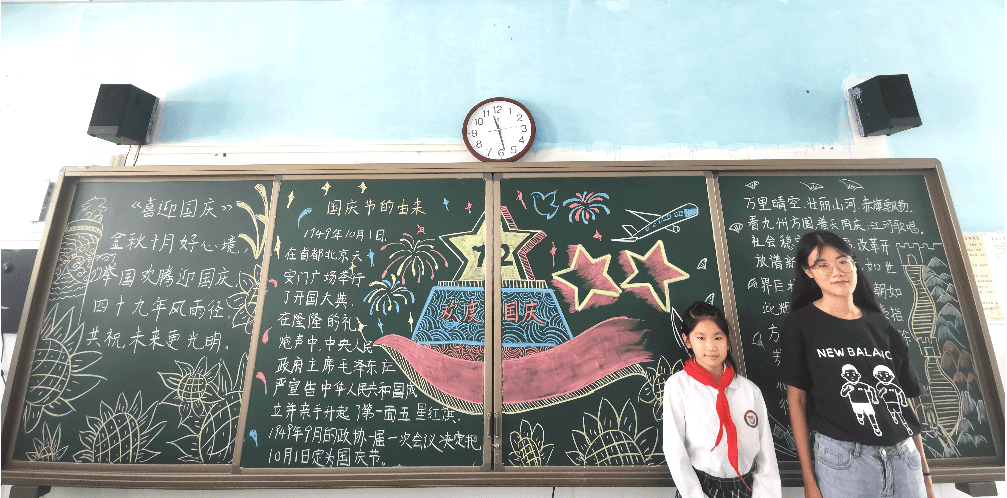 《喜迎国庆》
金秋十月好心境,
举国欢腾迎国庆,
四十九年风雨径,
共祝未来更光明。
国庆节的由来
1949年10月1日
在首都北京天
安门广场举行
了开国大典,
在隆隆的礼
炮声中,中央人民
政府主席毛泽东庄
严宣告中华人民共和国成
立并亲手升起了第一面五星红旗。
1949年9月的政协一届一次会议决定把
10月1日定为国庆节。
72
欢度国庆
万里晴空,壮丽山河,赤旗飘勃,
看九州方圆普天同庆,江河歌唱,
社会稳 改革开
放谱新 如世
界目 朝如
NEW BALANC
12
1
2
3
4
5
6
7
8
9
10
11